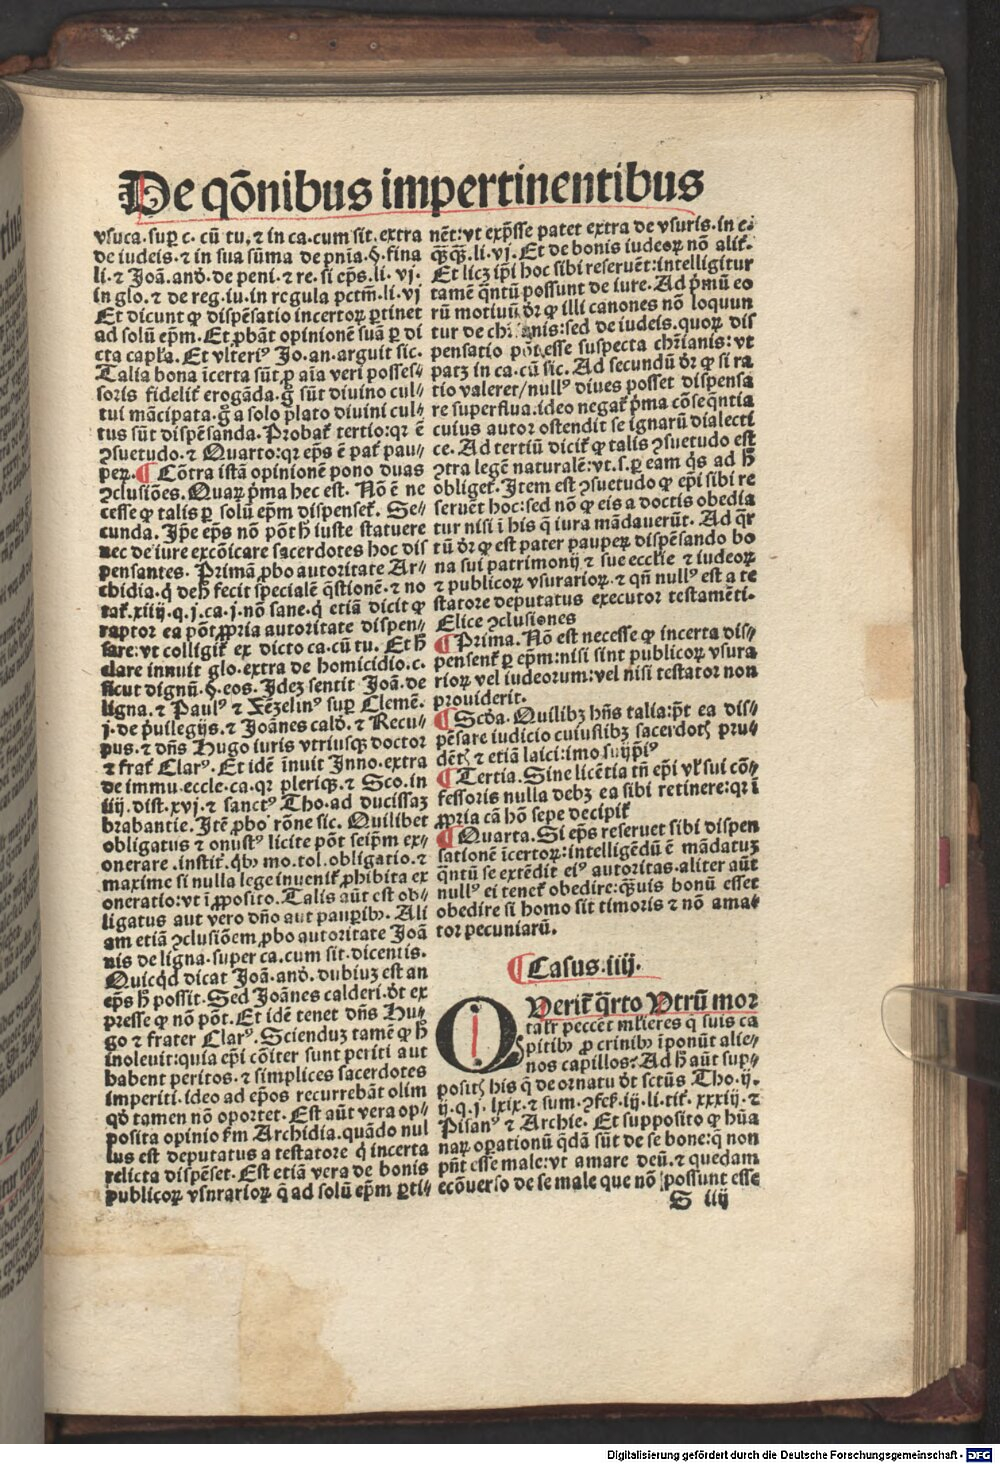 De qōnibus impertinentibus
vsuca.suꝑ c. cū tu. ⁊ in ca.cum sit.extra
de iudeis.⁊ in sua sūma de pnīa.§.fina
li.⁊ Joā.and̄.de peni.⁊ re.si ep̄s.li.vj.
in glo.⁊ de reg.iu.in regula pctm̄.li.vj
Et dicunt ꝙ dispēsatio incertoꝝ ꝑtinet
ad solū epm̄.Et ꝓbāt opinionē suā ꝑ di
cta capl̄a. Et vlteriꝰ Jo.an.arguit sic.
Talia bona īcerta sūt ꝓ aīa veri posses⸗
soris fidelit̄ erogāda.gͦ sūt diuino cul⸗
tui mācipata.gͦ a solo p̄lato diuini cul⸗
tus sūt dispēsanda.Probat̄ tertio:qr ē
ꝯsuetudo.⁊ Quarto:qr ep̄s ē pat̄ pau⸗
peꝝ.¶ Cōtra istā opinionē pono duas
ꝯclusiōes.Quaꝝ p̄ma hec est. Nō ē ne
cesse ꝙ talis ꝑ solū epm̄ dispenset̄. Se⸗
cunda. Ip̄e ep̄s nō pōt h̄ iuste statuere
nec de iure excōicare sacerdotes hoc dis
pensantes. Primā ꝓbo autoritate Ar⸗
chidia.q̄ deh̄ fecit specialē q̄stionē.⁊ no
tat̄.xiiij.q.j.ca.j.nō sane.q̄ etiā dicit ꝙ
raptor ea pōt ꝓpria autoritate dispen⸗
sare:vt colligit̄ ex dicto ca.cū tu. Et h̄
clare innuit glo.extra de homicidio.c.
sicut dignū.§.eos. Idez sentit Joā.de
ligna.⁊ Paulꝰ ⁊ Fēzelinꝰ suꝑ Clemē.
j.de p̄uilegijs.⁊ Joānes cald̄.⁊ Recu⸗
pus.⁊ dn̄s Hugo iuris vtriusqꝫ doctor
⁊ frat̄ Clarꝰ. Et idē īnuit Inno.extra
de immu.eccle.ca.qr pleriqꝫ.⁊ Sco.in
iiij.dist.xvj.⁊ sanctꝰ Tho.ad ducissaꝫ
brabantie. Itē ꝓbo rōne sic. Quilibet
obligatus ⁊ onustꝰ licite pōt seip̄m ex⸗
onerare .instit̄.q̄bꝫ mo.tol.obligatio.⁊
maxime si nulla lege inuenit̄ ꝓhibita ex
oneratio:vt ī ꝓposito.Talis aūt est ob⸗
ligatus aut vero dn̄o aut pauꝑibꝫ. Ali
am etiā ꝯclusiōem ꝓbo autoritate Joā
nis de ligna.super ca.cum sit.dicentis.
Quicq̄d dicat Joā.and̄.dubiuꝫ est an
ep̄s h̄ possit. Sed Joānes calderi.d̄t ex
presse ꝙ nō pōt.Et idē tenet dn̄s Hu⸗
go ⁊ frater Clarꝰ. Sciendūꝫ tamē ꝙ h̄
inoleuit:quia epi cōiter sunt periti aut
habent peritos.⁊ simplices sacerdotes
imperiti.ideo ad ep̄os recurrebāt olim
qd̄ tamen nō oportet. Est aūt vera op⸗
posita opinio fm̄ Archidia.quādo nul
lus est deputatus a testatore q̄ incerta
relicta dispēset. Est etiā vera de bonis
publicoꝝ vsurarioꝝ q̄ ad solū epm̄ ꝑti⸗
nēt:vt exp̄sse patet extra de vsuris.in c.
qꝫqꝫ.li.vj.Et de bonis iudeoꝝ nō alit̄.
Et licꝫ ip̄i hoc sibi reseruēt:intelligitur
tamē q̄ntū possunt de iure. Ad p̄mū eo
rū motiuū d̄r ꝙ illi canones nō loquun
tur de chianis:sed de iudeis.quoꝝ dis
pensatio pōt esse suspecta chr̄ianis:vt
patꝫ in ca.cū sic. Ad secundū d̄r ꝙ si ra
tio valeret/nullꝰ diues posset dispensa
re superflua.ideo negat̄ p̄ma cōseq̄ntia
cuius autor ostendit se ignarū dialecti
ce. Ad tertiū dicit̄ ꝙ talis ꝯsuetudo est
ꝯtra legē naturalē:vt.s.ꝑ eam q̄s ad h̄
obliget̄. Item est ꝯsuetudo ꝙ epi sibi re
seruēt hoc:sed nō ꝙ eis a doctis obedia
tur nisi ī his q̄ iura mādauerūt. Ad q̄r
tū d̄r ꝙ est pater paupeꝝ dispēsando bo
na sui patrimonij ⁊ sue eccl̄ie ⁊ iudeoꝝ
⁊ publicoꝝ vsurarioꝝ.⁊ qn̄ nullꝰ est a te
statore deputatus executor testamēti.
Elice ꝯclusiones
¶ Prima. Nō est necesse ꝙ incerta dis⸗
pensent̄ ꝑ epm̄:nisi sint publicoꝝ vsura
rioꝝ vel iudeorum:vel nisi testator non
prouiderit.
¶ Scd̄a. Quilibꝫ hn̄s talia:pt̄ ea dis⸗
pēsare iudicio cuiuslibꝫ sacerdotꝭ pru⸗
dētꝭ ⁊ etiā laici:imo suijp̄iꝰ
¶ Tertia. Sine licētia tn̄ epi vl̄ sui cō⸗
fessoris nulla debꝫ ea sibi retinere:qr ī
ꝓpria cā hō sepe decipit̄
¶ Quarta. Si ep̄s reseruet sibi dispen
sationē īcertoꝝ:intelligēdū ē mādatuꝫ
q̄ntū se extēdit eiꝰ autoritas.aliter aūt
nullꝰ ei tenet̄ obedire:qꝫuis bonū esset
obedire si homo sit timoris ⁊ nō ama⸗
tor pecuniarū.
¶ Casus.iiij.
QVerit̄ q̄rto Vtrū mor
talr̄ peccēt mlieres q̄ suis ca
pitibꝫ ꝓ crinibꝫ īponūt alie⸗
nos capillos? Ad h̄ aūt sup⸗
positꝭ his q̄ de ornatu d̄t sctūs Tho.ij.
ij.q.j.lxix.⁊ sum.ꝯfes̄.iij.li.tit̄.xxxiij.⁊
Pisanꝰ ⁊ Archie. Et supposito ꝙ hūa
naꝝ oꝑationū q̄dā sūt de se bone:q̄ non
pn̄t esse male:vt amare deū.⁊ quedam
ecōuerso de se male que nō possunt esse
S iij
Digitalisierung gefördert durch die Deutsche Forschungsgemeinschaft - DFG